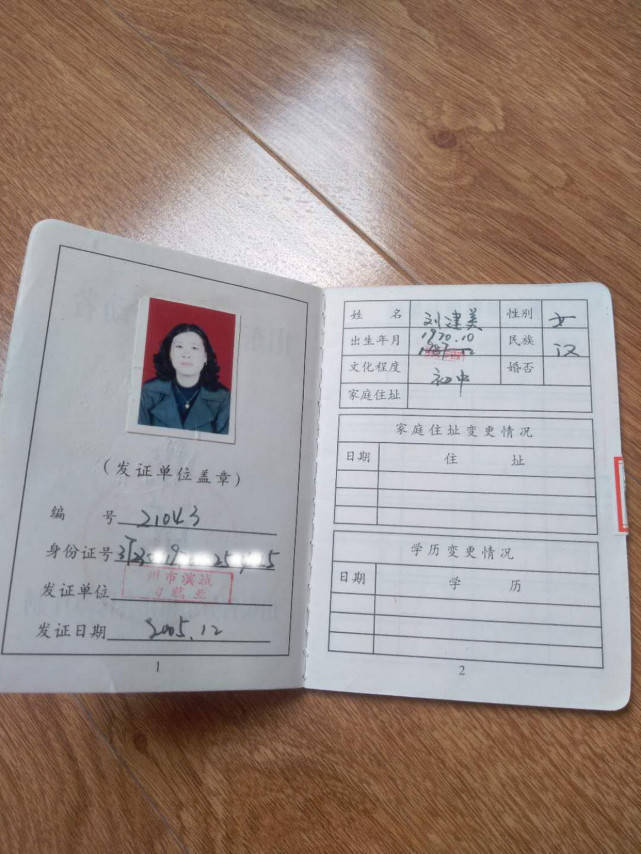 (发证单位盖章)
编 号 21043
身份证号
发证单位
州市滨城
发证日期 2005.12
1
姓 名 刘建美 性别 女
出生年月 1970.10 民族 汉
文化程度 初中 婚否
家庭住址
家庭住址变更情况
日期 住 址
学历变更情况
日期 学 历
2